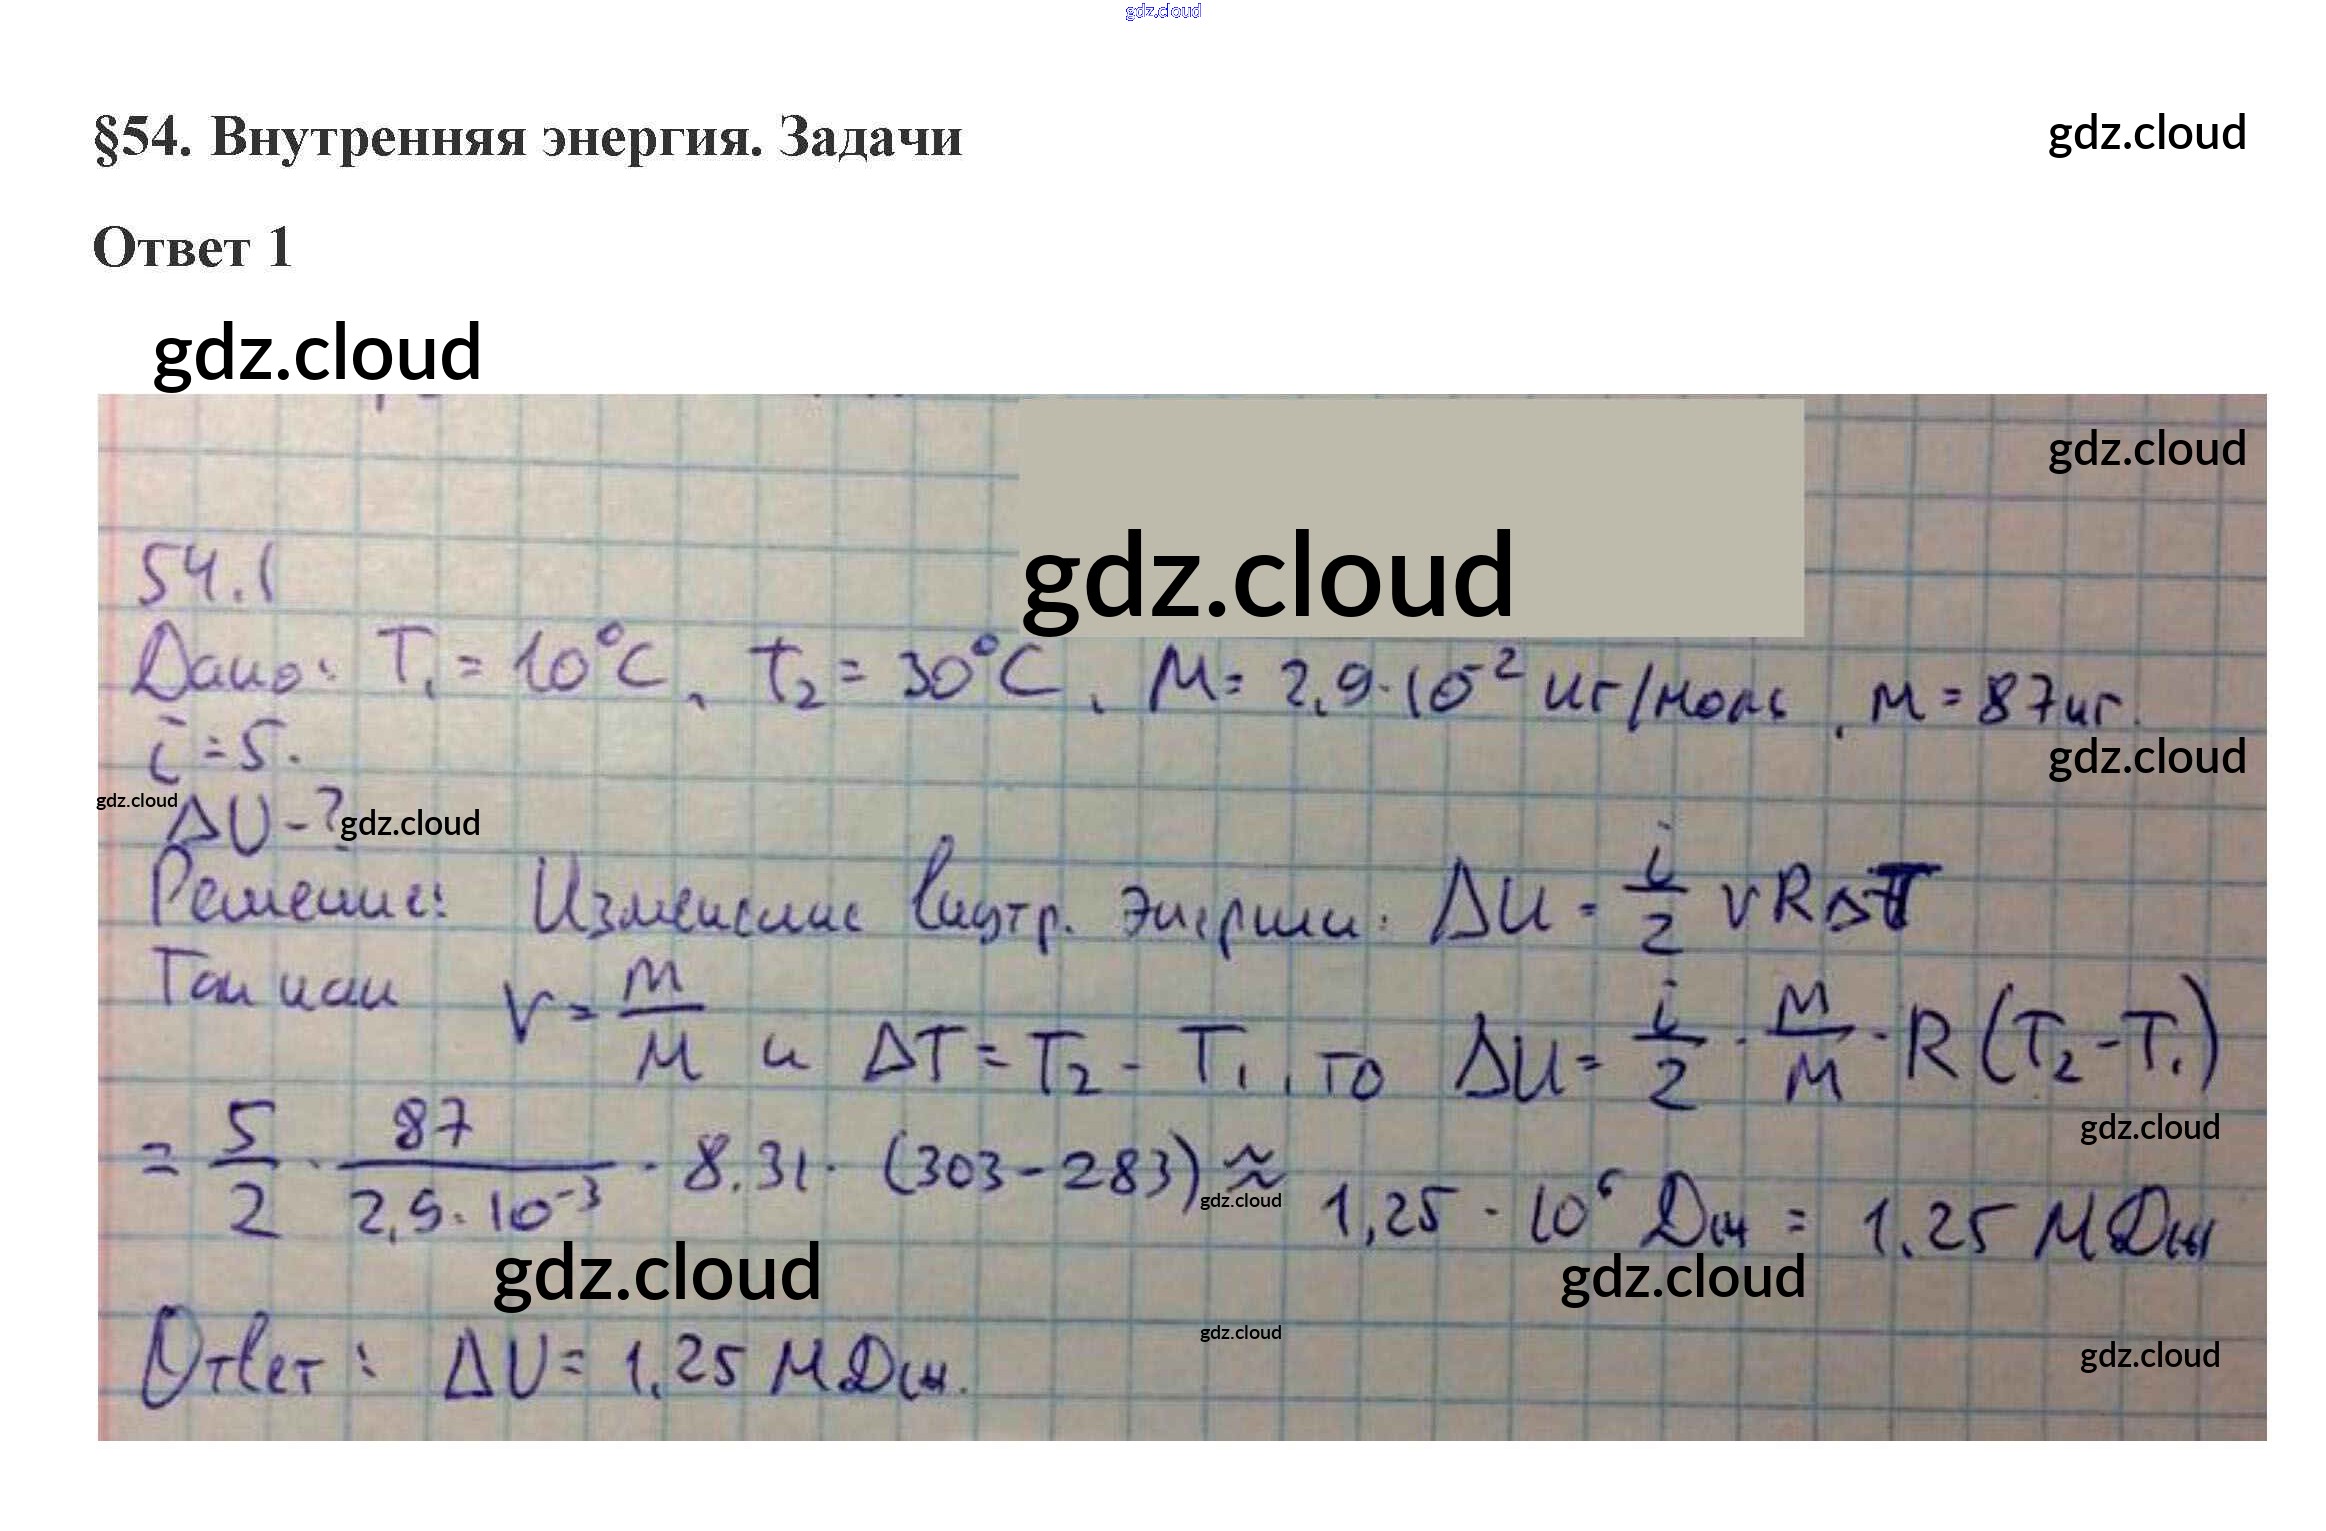 gdz.cloud
§54. Внутренняя энергия. Задачи
gdz.cloud
Ответ 1
gdz.cloud
gdz.cloud
gdz.cloud
54.1
Дано: T₁ = 10°C, t₂ = 30°C, M = 2,9·10⁻² кг/моль, m = 87кг.
i = 5.
gdz.cloud
gdz.cloud
ΔU - ?
gdz.cloud
Решение: Изменение внутр. энергии: ΔU = i/2 νRΔT
Так как ν = m/M и ΔT = T₂ - T₁, то ΔU = i/2 · m/M · R(T₂-T₁)
gdz.cloud
= 5/2 · 87/2,9·10⁻³ · 8,31 · (303-283) ≈ 1,25 · 10⁶ Дж = 1,25 МДж
gdz.cloud
gdz.cloud
gdz.cloud
gdz.cloud
gdz.cloud
Ответ: ΔU = 1,25 МДж.